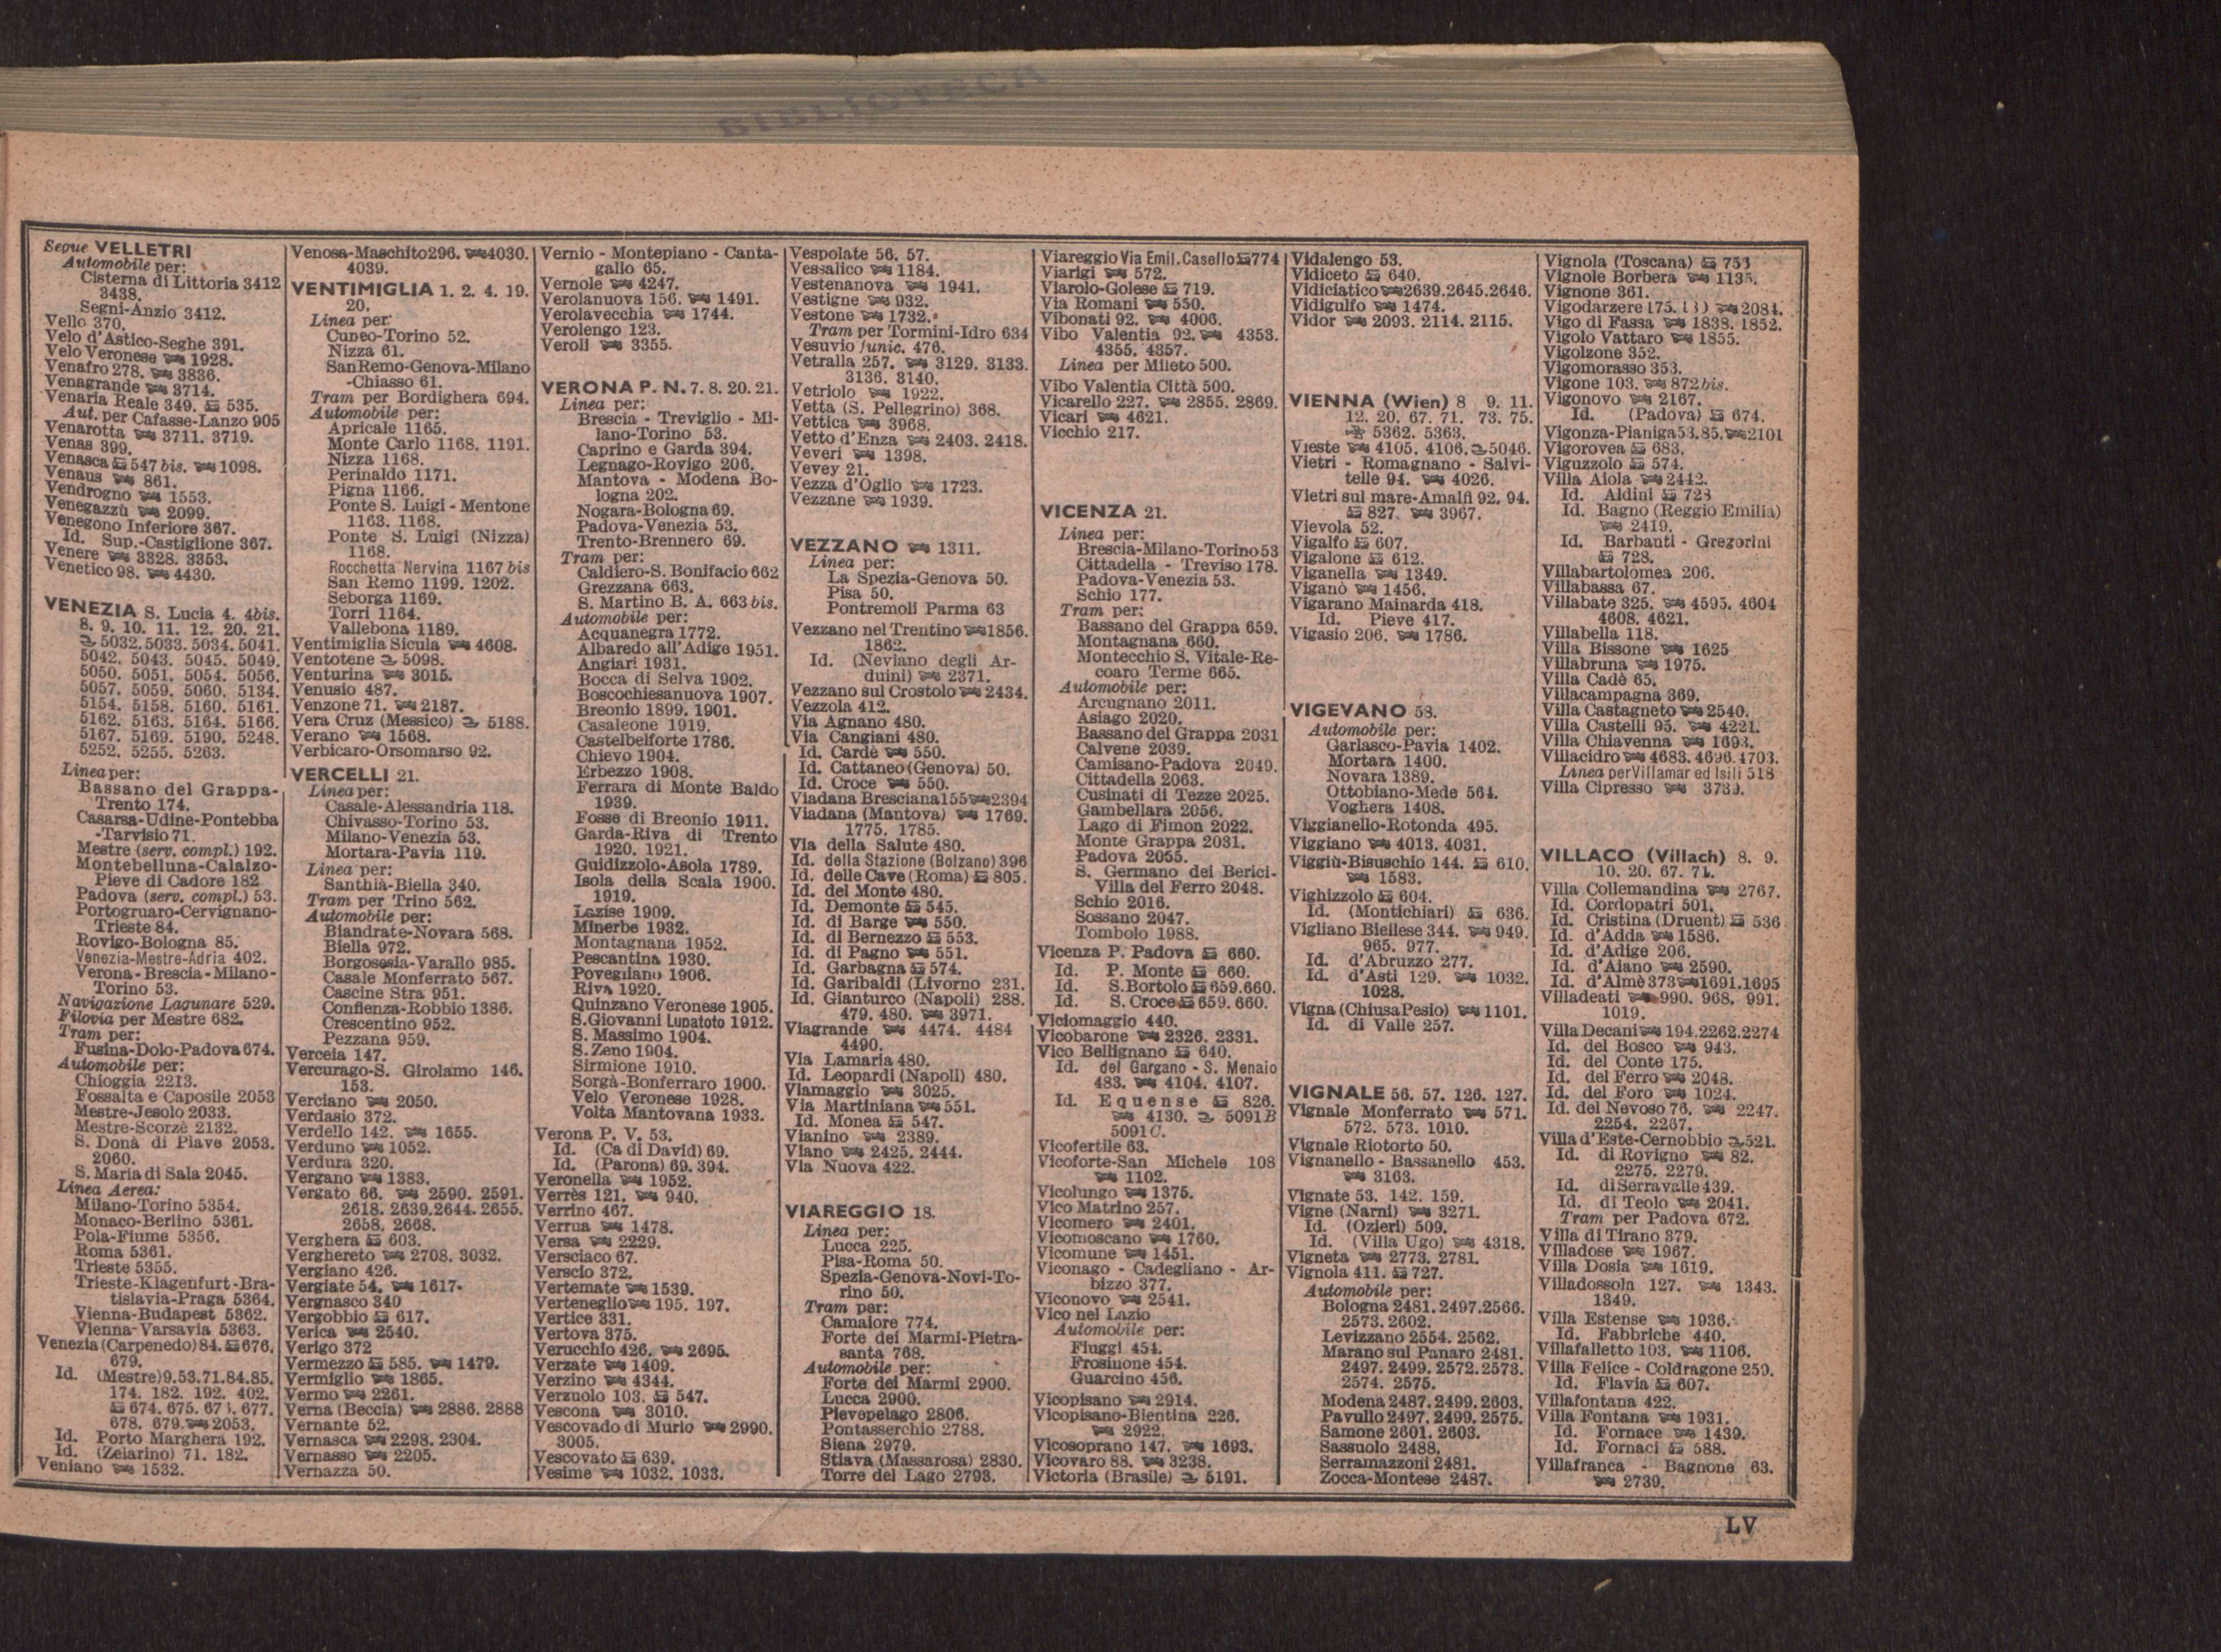 BIBLIOTECA
Segue VELLETRI
Automobile per:
Cisterna di Littoria 3412
3438.
Segni-Anzio 3412.
Vello 370.
Velo d'Astico-Seghe 391.
Velo Veronese 1928.
Venafro 278. 3836.
Venagrande 3714.
Venaria Reale 349. 535.
Aut. per Cafasse-Lanzo 905
Venarotta 3711. 3719.
Venas 399.
Venasca 547 bis. 1098.
Venaus 861.
Vendrogno 1553.
Venegazzù 2099.
Venegono Inferiore 367.
Id. Sup.-Castiglione 367.
Venere 3328. 3353.
Venetico 98. 4430.
VENEZIA S. Lucia 4. 4bis.
8. 9. 10. 11. 12. 20. 21.
5032. 5033. 5034. 5041.
5042. 5043. 5045. 5049.
5050. 5051. 5054. 5056.
5057. 5059. 5060. 5134.
5154. 5158. 5160. 5161.
5162. 5163. 5164. 5166.
5167. 5169. 5190. 5248.
5252. 5255. 5263.
Linea per:
Bassano del Grappa-
Trento 174.
Casarsa-Udine-Pontebba
-Tarvisio 71.
Mestre (serv. compl.) 192.
Montebelluna-Calalzo-
Pieve di Cadore 182
Padova (serv. compl.) 53.
Portogruaro-Cervignano-
Trieste 84.
Rovigo-Bologna 85.
Venezia-Mestre-Adria 402.
Verona-Brescia-Milano-
Torino 53.
Navigazione Lagunare 529.
Filovia per Mestre 682.
Tram per:
Fusina-Dolo-Padova 674.
Automobile per:
Chioggia 2213.
Fossalta e Caposile 2053
Mestre-Jesolo 2033.
Mestre-Scorzè 2132.
S. Donà di Piave 2053.
2060.
S. Maria di Sala 2045.
Linea Aerea:
Milano-Torino 5354.
Monaco-Berlino 5361.
Pola-Fiume 5356.
Roma 5361.
Trieste 5355.
Trieste-Klagenfurt-Bra-
tislavia-Praga 5364.
Vienna-Budapest 5362.
Vienna-Varsavia 5363.
Venezia (Carpenedo) 84. 676.
679.
Id. (Mestre) 9.53.71.84.85.
174. 182. 192. 402.
674. 675. 677.
678. 679. 2053.
Id. Porto Marghera 192.
Id. (Zelarino) 71. 182.
Veniano 1532.
Venosa-Maschito 296. 4030.
4039.
VENTIMIGLIA 1. 2. 4. 19.
20.
Linea per:
Cuneo-Torino 52.
Nizza 61.
San Remo-Genova-Milano
-Chiasso 61.
Tram per Bordighera 694.
Automobile per:
Apricale 1165.
Monte Carlo 1168. 1191.
Nizza 1168.
Perinaldo 1171.
Pigna 1166.
Ponte S. Luigi - Mentone
1163. 1168.
Ponte S. Luigi (Nizza)
1168.
Rocchetta Nervina 1167 bis
San Remo 1199. 1202.
Seborga 1169.
Torri 1164.
Vallebona 1189.
Ventimiglia Sicula 4608.
Ventotene 5098.
Venturina 3015.
Venusio 487.
Venzone 71. 2187.
Vera Cruz (Messico) 5188.
Verano 1568.
Verbicaro-Orsomarso 92.
VERCELLI 21.
Linea per:
Casale-Alessandria 118.
Chivasso-Torino 53.
Milano-Venezia 53.
Mortara-Pavia 119.
Linea per:
Santhià-Biella 340.
Tram per Trino 562.
Automobile per:
Biandrate-Novara 568.
Biella 972.
Borgosesia-Varallo 985.
Casale Monferrato 567.
Cascine Stra 951.
Confienza-Robbio 1386.
Crescentino 952.
Pezzana 959.
Verceia 147.
Vercurago-S. Girolamo 146.
153.
Verciano 2050.
Verdasio 372.
Verdello 142. 1655.
Verduno 1052.
Verdura 320.
Vergano 1383.
Vergato 66. 2590. 2591.
2618. 2639.2644. 2655.
2658. 2668.
Verghera 603.
Verghereto 2708. 3032.
Vergiano 426.
Vergiate 54. 1617.
Vergnasco 340
Vergobbio 617.
Verica 2540.
Verigo 372
Vermezzo 585. 1479.
Vermiglio 1865.
Vermo 2261.
Verna (Beccia) 2886. 2888
Vernante 52.
Vernasca 2298. 2304.
Vernasso 2205.
Vernazza 50.
Vernio - Montepiano - Canta-
gallo 65.
Vernole 4247.
Verolanuova 156. 1491.
Verolavecchia 1744.
Verolengo 123.
Veroli 3355.
VERONA P. N. 7. 8. 20. 21.
Linea per:
Brescia - Treviglio - Mi-
lano-Torino 53.
Caprino e Garda 394.
Legnago-Rovigo 206.
Mantova - Modena Bo-
logna 202.
Nogara-Bologna 69.
Padova-Venezia 53.
Trento-Brennero 69.
Tram per:
Caldiero-S. Bonifacio 662
Grezzana 663.
S. Martino B. A. 663 bis.
Automobile per:
Acquanegra 1772.
Albaredo all'Adige 1951.
Angiari 1931.
Bocca di Selva 1902.
Boscochiesanuova 1907.
Breonio 1899. 1901.
Casaleone 1919.
Castelbelforte 1786.
Chievo 1904.
Erbezzo 1908.
Ferrara di Monte Baldo
1939.
Fosse di Breonio 1911.
Garda-Riva di Trento
1920. 1921.
Guidizzolo-Asola 1789.
Isola della Scala 1900.
1919.
Lazise 1909.
Minerbe 1932.
Montagnana 1952.
Pescantina 1930.
Povegliano 1906.
Riva 1920.
Quinzano Veronese 1905.
S.Giovanni Lupatoto 1912.
S. Massimo 1904.
S. Zeno 1904.
Sirmione 1910.
Sorgà-Bonferraro 1900.
Velo Veronese 1928.
Volta Mantovana 1933.
Verona P. V. 53.
Id. (Ca di David) 69.
Id. (Parona) 69. 394.
Veronella 1952.
Verrès 121. 940.
Verrino 467.
Verrua 1478.
Versa 2229.
Versciaco 67.
Verscio 372.
Vertemate 1539.
Verteneglio 195. 197.
Vertice 331.
Vertova 375.
Verucchio 426. 2695.
Verzate 1409.
Verzino 4344.
Verzuolo 103. 547.
Vescona 3010.
Vescovado di Murlo 2990.
3005.
Vescovato 639.
Vesime 1032. 1033.
Vespolate 56. 57.
Vessalico 1184.
Vestenanova 1941.
Vestigne 932.
Vestone 1732.
Tram per Tormini-Idro 634
Vesuvio funic. 476.
Vetralla 257. 3129. 3133.
3136. 3140.
Vetriolo 1922.
Vetta (S. Pellegrino) 368.
Vettica 3968.
Vetto d'Enza 2403. 2418.
Veveri 1398.
Vevey 21.
Vezza d'Oglio 1723.
Vezzane 1939.
VEZZANO 1311.
Linea per:
La Spezia-Genova 50.
Pisa 50.
Pontremoli Parma 63
Vezzano nel Trentino 1856.
1862.
Id. (Neviano degli Ar-
duini) 2371.
Vezzano sul Crostolo 2434.
Vezzola 412.
Via Agnano 480.
Via Cangiani 480.
Id. Cardè 550.
Id. Cattaneo (Genova) 50.
Id. Croce 550.
Viadana Bresciana 155 2394
Viadana (Mantova) 1769.
1775. 1785.
Via della Salute 480.
Id. della Stazione (Bolzano) 396
Id. delle Cave (Roma) 805.
Id. del Monte 480.
Id. Demonte 545.
Id. di Barge 550.
Id. di Bernezzo 553.
Id. di Pagno 551.
Id. Garbagna 574.
Id. Garibaldi (Livorno 231.
Id. Gianturco (Napoli) 288.
479. 480. 3971.
Viagrande 4474. 4484
4490.
Via Lamaria 480.
Id. Leopardi (Napoli) 480.
Viamaggio 3025.
Via Martiniana 551.
Id. Monea 547.
Vianino 2389.
Viano 2425. 2444.
Via Nuova 422.
VIAREGGIO 18.
Linea per:
Lucca 225.
Pisa-Roma 50.
Spezia-Genova-Novi-To-
rino 50.
Tram per:
Camaiore 774.
Forte dei Marmi-Pietra-
santa 768.
Automobile per:
Forte dei Marmi 2900.
Lucca 2900.
Pievepelago 2806.
Pontasserchio 2788.
Siena 2979.
Stiava (Massarosa) 2830.
Torre del Lago 2793.
Viareggio Via Emil. Casello 774
Viarigi 572.
Viarolo-Golese 719.
Via Romani 550.
Vibonati 92. 4006.
Vibo Valentia 92. 4353.
4355. 4357.
Linea per Mileto 500.
Vibo Valentia Città 500.
Vicarello 227. 2855. 2869.
Vicari 4621.
Vicchio 217.
VICENZA 21.
Linea per:
Brescia-Milano-Torino 53
Cittadella - Treviso 178.
Padova-Venezia 53.
Schio 177.
Tram per:
Bassano del Grappa 659.
Montagnana 660.
Montecchio S. Vitale-Re-
coaro Terme 665.
Automobile per:
Arcugnano 2011.
Asiago 2020.
Bassano del Grappa 2031
Calvene 2039.
Camisano-Padova 2049.
Cittadella 2063.
Cusinati di Tezze 2025.
Gambellara 2056.
Lago di Fimon 2022.
Monte Grappa 2031.
Padova 2055.
S. Germano dei Berici-
Villa del Ferro 2048.
Schio 2016.
Sossano 2047.
Tombolo 1988.
Vicenza P. Padova 660.
Id. P. Monte 660.
Id. S.Bortolo 659.660.
Id. S. Croce 659. 660.
Viciomaggio 440.
Vicobarone 2326. 2331.
Vico Bellignano 640.
Id. del Gargano - S. Menaio
483. 4104. 4107.
Id. Equense 826.
4130. 5091B
5091C.
Vicofertile 63.
Vicoforte-San Michele 108
1102.
Vicolungo 1375.
Vico Matrino 257.
Vicomero 2401.
Vicomoscano 1760.
Vicomune 1451.
Viconago - Cadegliano - Ar-
bizzo 377.
Viconovo 2541.
Vico nel Lazio
Automobile per:
Fiuggi 454.
Frosinone 454.
Guarcino 456.
Vicopisano 2914.
Vicopisano-Bientina 226.
2922.
Vicosoprano 147. 1693.
Vicovaro 88. 3238.
Victoria (Brasile) 5191.
Vidalengo 53.
Vidiceto 640.
Vidiciatico 2639.2645.2646.
Vidigulfo 1474.
Vidor 2093. 2114. 2115.
VIENNA (Wien) 8 9. 11.
12. 20. 67. 71. 73. 75.
5362. 5363.
Vieste 4105. 4106. 5046.
Vietri - Romagnano - Salvi-
telle 94. 4026.
Vietri sul mare-Amalfi 92. 94.
827. 3967.
Vievola 52.
Vigalfo 607.
Vigalone 612.
Viganella 1349.
Viganò 1456.
Vigarano Mainarda 418.
Id. Pieve 417.
Vigasio 206. 1786.
VIGEVANO 58.
Automobile per:
Garlasco-Pavia 1402.
Mortara 1400.
Novara 1389.
Ottobiano-Mede 564.
Voghera 1408.
Viggianello-Rotonda 495.
Viggiano 4013. 4031.
Viggiù-Bisuschio 144. 610.
1583.
Vighizzolo 604.
Id. (Montichiari) 636.
Vigliano Biellese 344. 949.
965. 977.
Id. d'Abruzzo 277.
Id. d'Asti 129. 1032.
1028.
Vigna (Chiusa Pesio) 1101.
Id. di Valle 257.
VIGNALE 56. 57. 126. 127.
Vignale Monferrato 571.
572. 573. 1010.
Vignale Riotorto 50.
Vignanello - Bassanello 453.
3163.
Vignate 53. 142. 159.
Vigne (Narni) 3271.
Id. (Ozieri) 509.
Id. (Villa Ugo) 4318.
Vigneta 2773. 2781.
Vignola 411. 727.
Automobile per:
Bologna 2481. 2497.2566.
2573. 2602.
Levizzano 2554. 2562.
Marano sul Panaro 2481.
2497. 2499. 2572.2573.
2574. 2575.
Modena 2487. 2499. 2603.
Pavullo 2497. 2499. 2575.
Samone 2601. 2603.
Sassuolo 2488.
Serramazzoni 2481.
Zocca-Montese 2487.
Vignola (Toscana) 753
Vignole Borbera 1135.
Vignone 361.
Vigodarzere 175. 2084.
Vigo di Fassa 1838. 1852.
Vigolo Vattaro 1855.
Vigolzone 352.
Vigomorasso 353.
Vigone 103. 872 bis.
Vigonovo 2167.
Id. (Padova) 674.
Vigonza-Pianiga 53.85. 2101
Vigorovea 683.
Viguzzolo 574.
Villa Aiola 2442.
Id. Aldini 723
Id. Bagno (Reggio Emilia)
2419.
Id. Barbanti - Gregorini
728.
Villabartolomea 206.
Villabassa 67.
Villabate 325. 4595. 4604
4608. 4621.
Villabella 118.
Villa Bissone 1625
Villabruna 1975.
Villa Cadè 65.
Villacampagna 369.
Villa Castagneto 2540.
Villa Castelli 95. 4221.
Villa Chiavenna 1693.
Villacidro 4683. 4696. 4703.
Linea per Villamar ed Isili 518
Villa Cipresso 3739.
VILLACO (Villach) 8. 9.
10. 20. 67. 71.
Villa Collemandina 2767.
Id. Cordopatri 501.
Id. Cristina (Druent) 536
Id. d'Adda 1586.
Id. d'Adige 206.
Id. d'Aiano 2590.
Id. d'Almè 373 1691.1695
Villadeati 990. 968. 991.
1019.
Villa Decani 194.2262.2274
Id. del Bosco 943.
Id. del Conte 175.
Id. del Ferro 2048.
Id. del Foro 1024.
Id. del Nevoso 76. 2247.
2254. 2267.
Villa d'Este-Cernobbio 521.
Id. di Rovigno 82.
2275. 2279.
Id. di Serravalle 439.
Id. di Teolo 2041.
Tram per Padova 672.
Villa di Tirano 379.
Villadose 1967.
Villa Dosia 1619.
Villadossola 127. 1343.
1349.
Villa Estense 1936.
Id. Fabbriche 440.
Villafalletto 103. 1106.
Villa Felice - Coldragone 259.
Id. Flavia 607.
Villafontana 422.
Villa Fontana 1931.
Id. Fornace 1439.
Id. Fornaci 588.
Villafranca - Bagnone 63.
2739.
LV